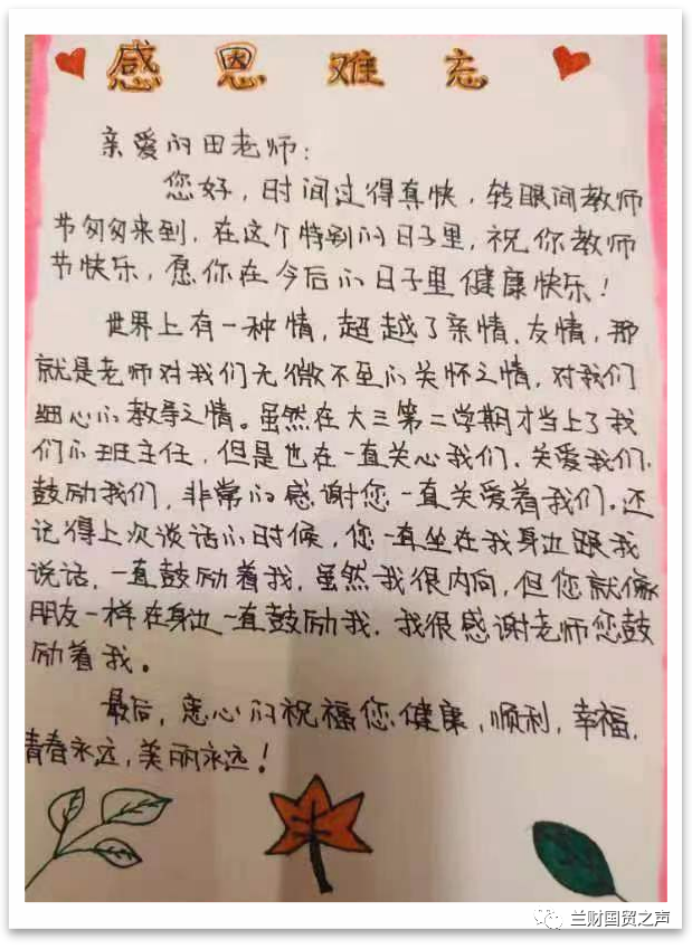 感恩难忘
亲爱的田老师:
您好,时间过得真快,转眼间教师
节匆匆来到,在这个特别的日子里,祝你教师
节快乐,愿你在今后的日子里健康快乐!
世界上有一种情,超越了亲情、友情,那
就是老师对我们无微不至的关怀之情,对我们
细心的教导之情。虽然在大三第二学期才当上了我
们的班主任,但是也在一直关心我们.关爱我们.
鼓励我们,非常的感谢您一直关爱着我们.还
记得上次谈话的时候,您一直坐在我身边跟我
说话,一直鼓励着我,虽然我很内向,但您就像
朋友一样在身边一直鼓励我.我很感谢老师您鼓
励着我。
最后,衷心的祝福您健康,顺利,幸福,
青春永远,美丽永远!
兰财国贸之声